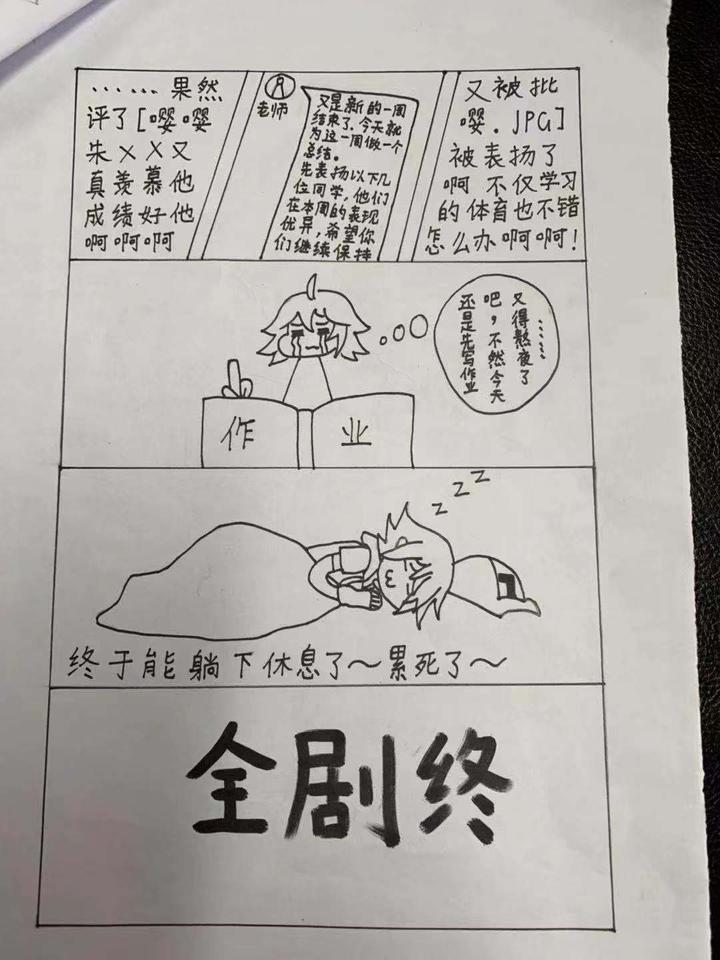 ……果然
评了[嘤嘤
朱××又
真羡慕他
成绩好他
啊啊啊
老师
又是新的一周
结束了.今天就
为这一周做一个
总结。
先表扬以下几
位同学,他们
在本周的表现
优异,希望你
们继续保持
又被批
嘤.JPG]
被表扬了
啊 不仅学习
的体育也不错
怎么办啊啊!
……又得熬夜了
吧,不然今天
还是先写作业
作 业
z z z
终于能躺下休息了～累死了～
全剧终